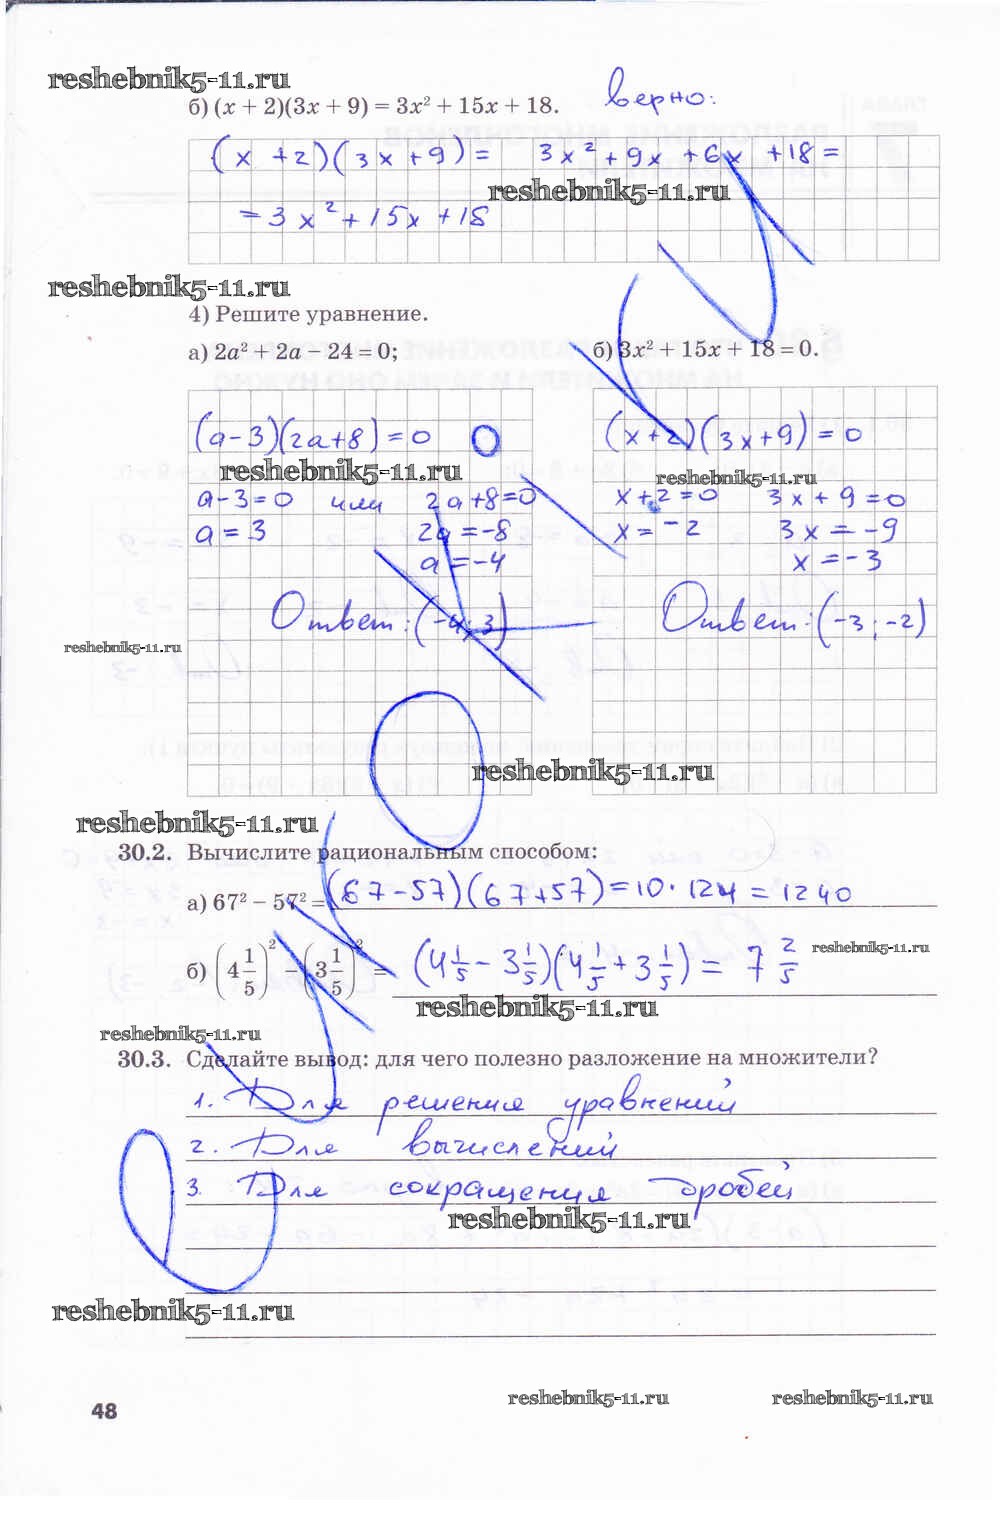 reshebnik5-11.ru
б) (x + 2)(3x + 9) = 3x² + 15x + 18. верно:
(x + 2)(3x + 9) = 3x² + 9x + 6x + 18 =
reshebnik5-11.ru
= 3x² + 15x + 18
reshebnik5-11.ru
4) Решите уравнение.
а) 2a² + 2a − 24 = 0; б) 3x² + 15x + 18 = 0.
(a-3)(2a+8) = 0 (x+2)(3x+9) = 0
reshebnik5-11.ru reshebnik5-11.ru
a-3=0 или 2a+8=0 x+2=0 3x+9=0
a=3 2a=-8 x=-2 3x=-9
a=-4 x=-3
Ответ: (-4; 3) Ответ: (-3; -2)
reshebnik5-11.ru
reshebnik5-11.ru
reshebnik5-11.ru
30.2. Вычислите рациональным способом:
а) 67² − 57² = (67-57)(67+57) = 10·124 = 1240
б) (4 1/5)² − (3 1/5)² = (4 1/5 - 3 1/5)(4 1/5 + 3 1/5) = 7 2/5 reshebnik5-11.ru
reshebnik5-11.ru
reshebnik5-11.ru
30.3. Сделайте вывод: для чего полезно разложение на множители?
1. Для решения уравнений
2. Для вычислений
3. Для сокращения дробей
reshebnik5-11.ru
reshebnik5-11.ru
reshebnik5-11.ru reshebnik5-11.ru
48